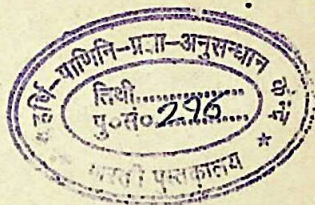 महर्षि-पाणिनि-प्रज्ञा-अनुसन्धान केन्द्र
तिथी..............
पु०सं० 296
पुस्तकालय